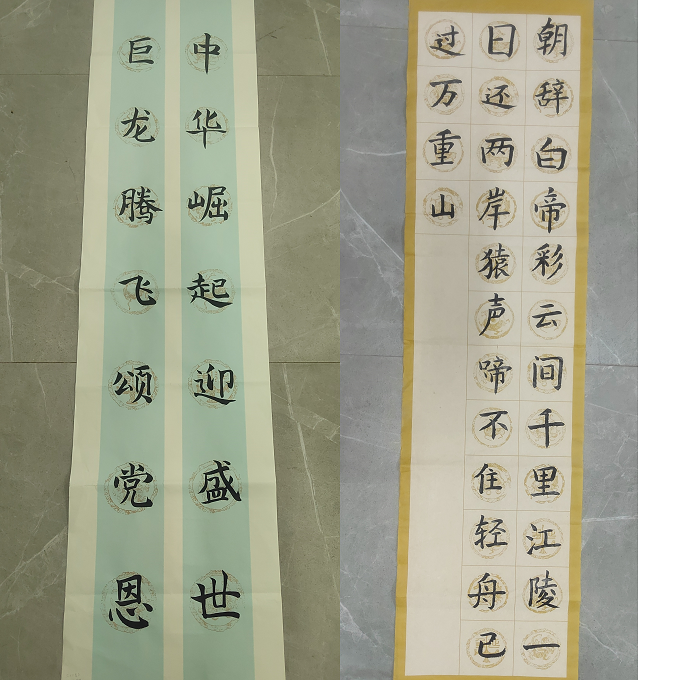 中华崛起迎盛世
巨龙腾飞颂党恩
朝辞白帝彩云间千里江陵一
日还两岸猿声啼不住轻舟已
过万重山